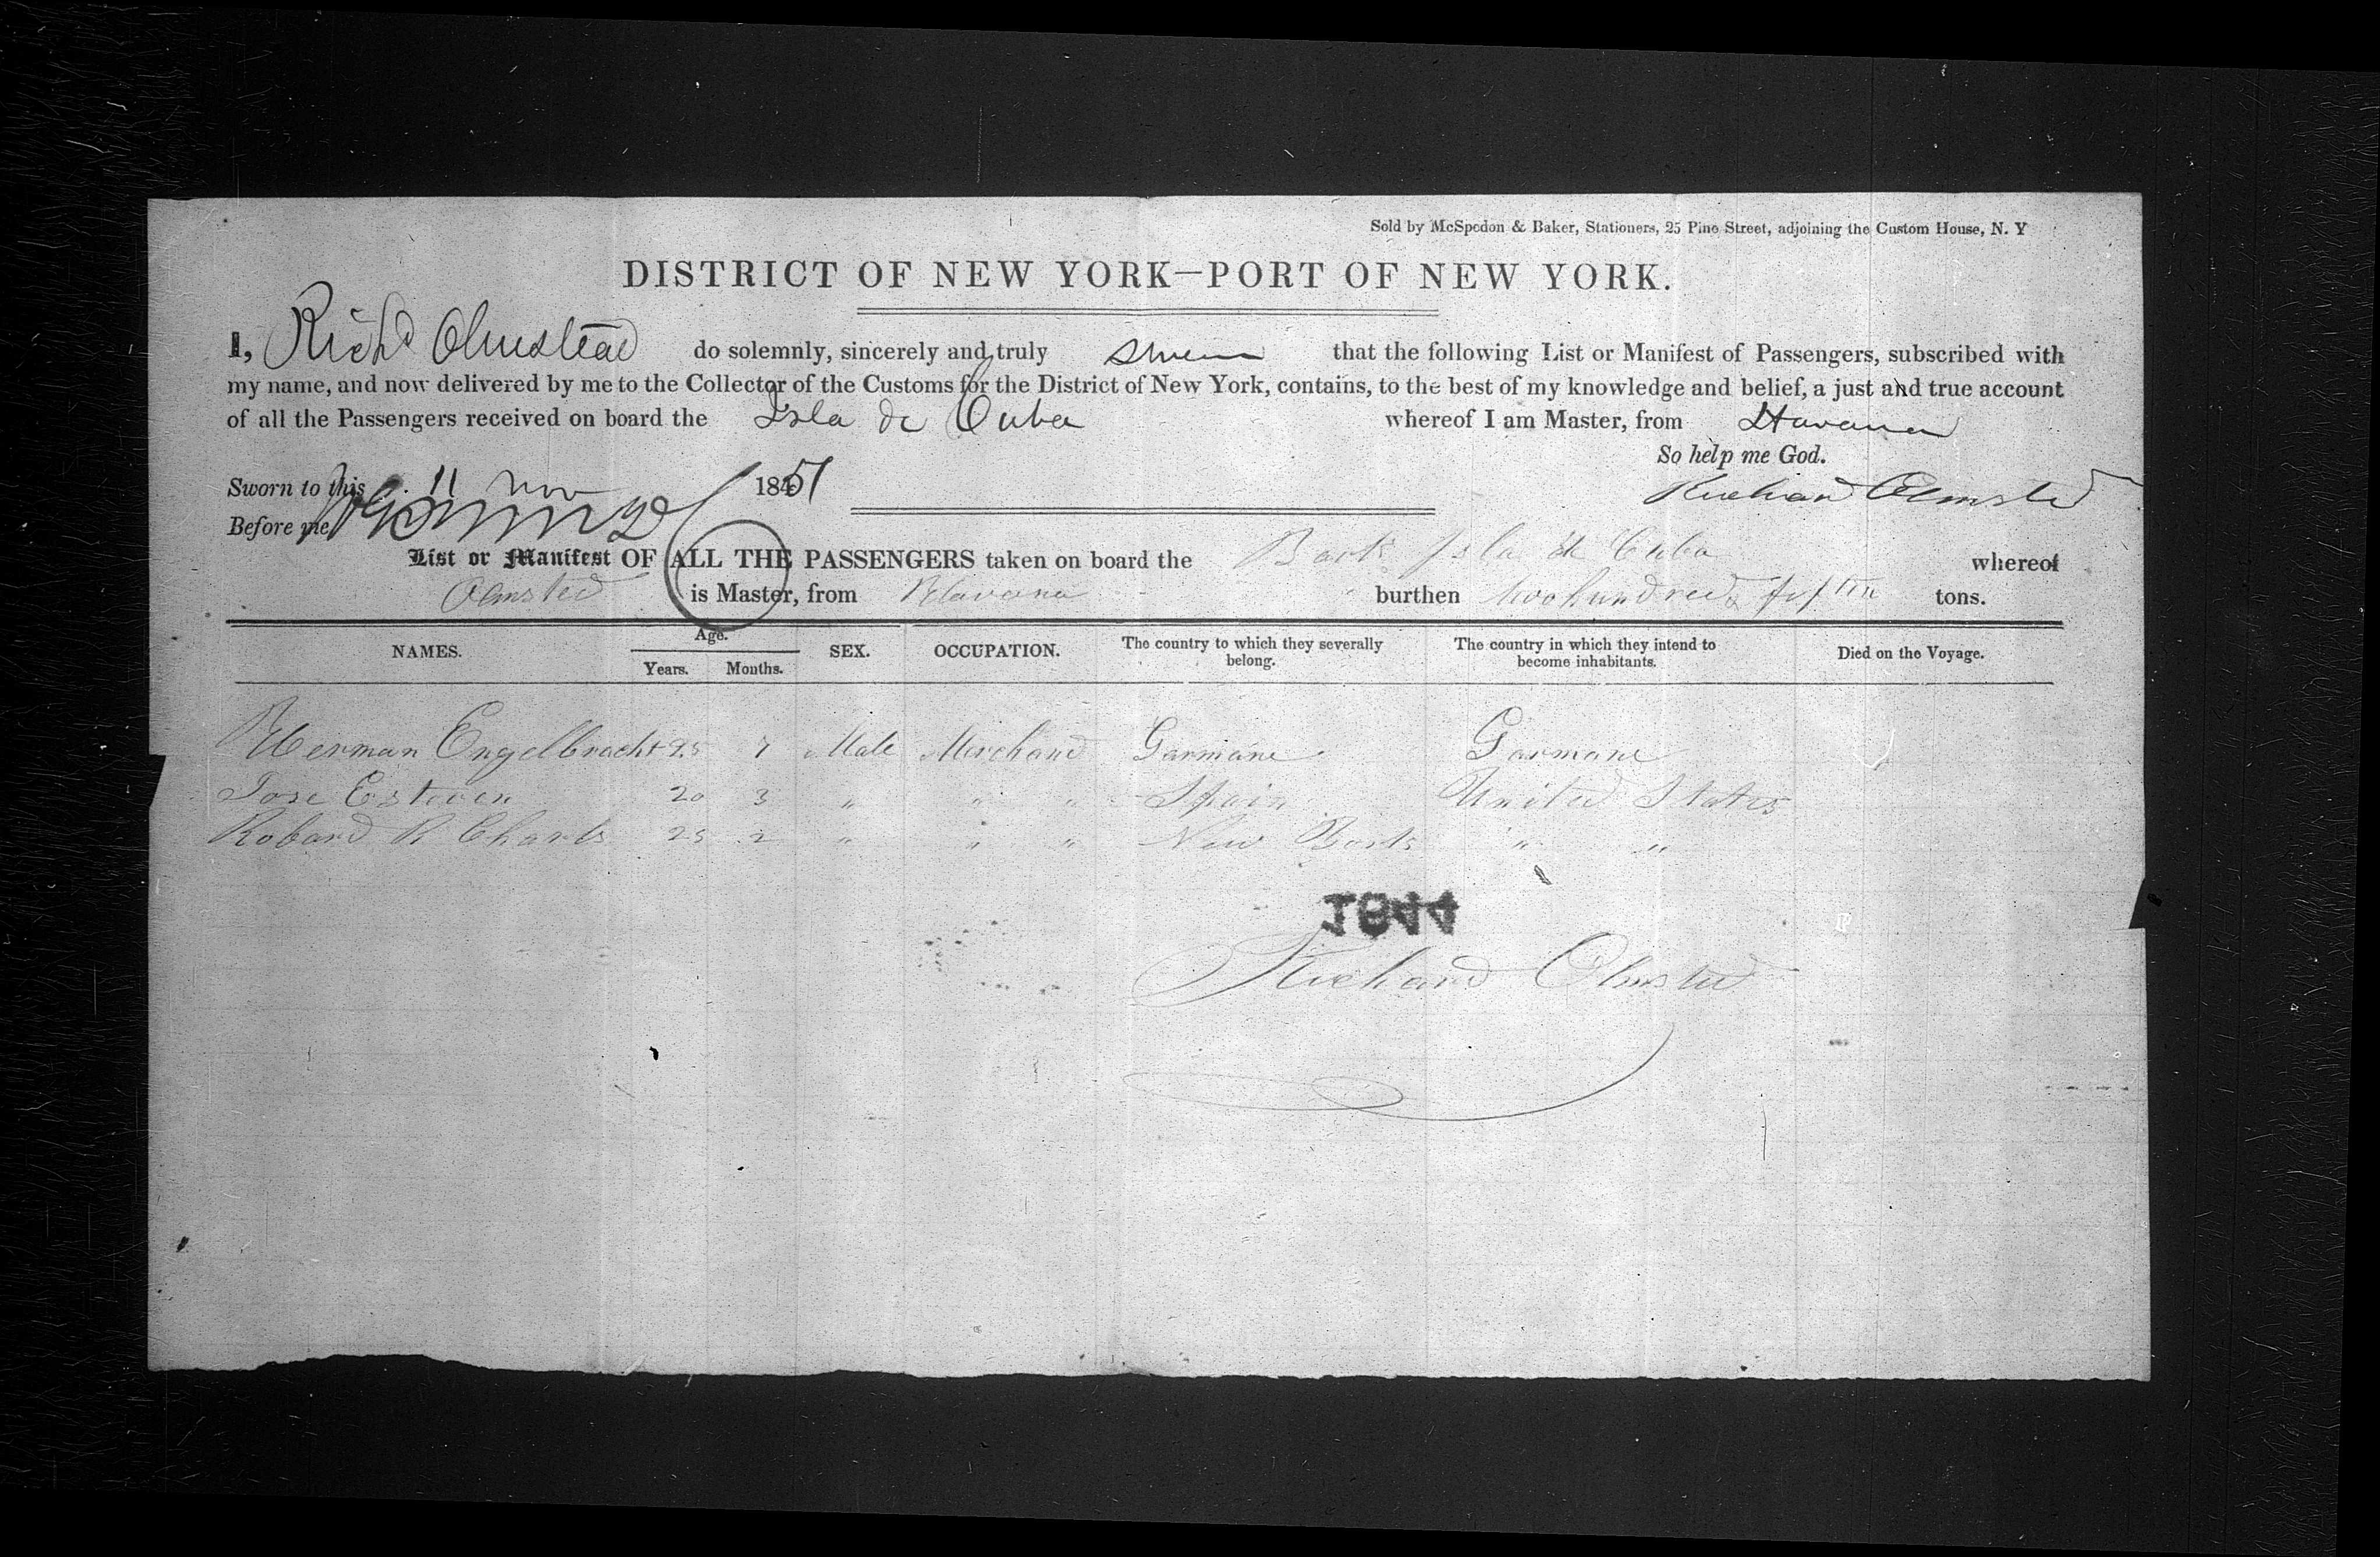 Sold by McSpedon & Baker, Stationers, 25 Pine Street, adjoining the Custom House, N. Y
DISTRICT OF NEW YORK—PORT OF NEW YORK.
I, Richd Olmstead do solemnly, sincerely and truly swear that the following List or Manifest of Passengers, subscribed with
my name, and now delivered by me to the Collector of the Customs for the District of New York, contains, to the best of my knowledge and belief, a just and true account
of all the Passengers received on board the Isla de Cuba whereof I am Master, from Havana
So help me God.
Sworn to this 11 Nov 1851
Richard Olmsted
Before me
List or Manifest OF ALL THE PASSENGERS taken on board the Bark Isla de Cuba whereof
Olmsted is Master, from Havana burthen twohundred & fiften tons.
NAMES. Age. Years. Months. SEX. OCCUPATION. The country to which they severally belong. The country in which they intend to become inhabitants. Died on the Voyage.
Herman Engelbracht 25 7 Male Merchand Garmane Garmane
Jose Esteven 20 3 " " " Spain United States
Robard R Charls 25 2 " " " New York " "
1044
Richard Olmsted